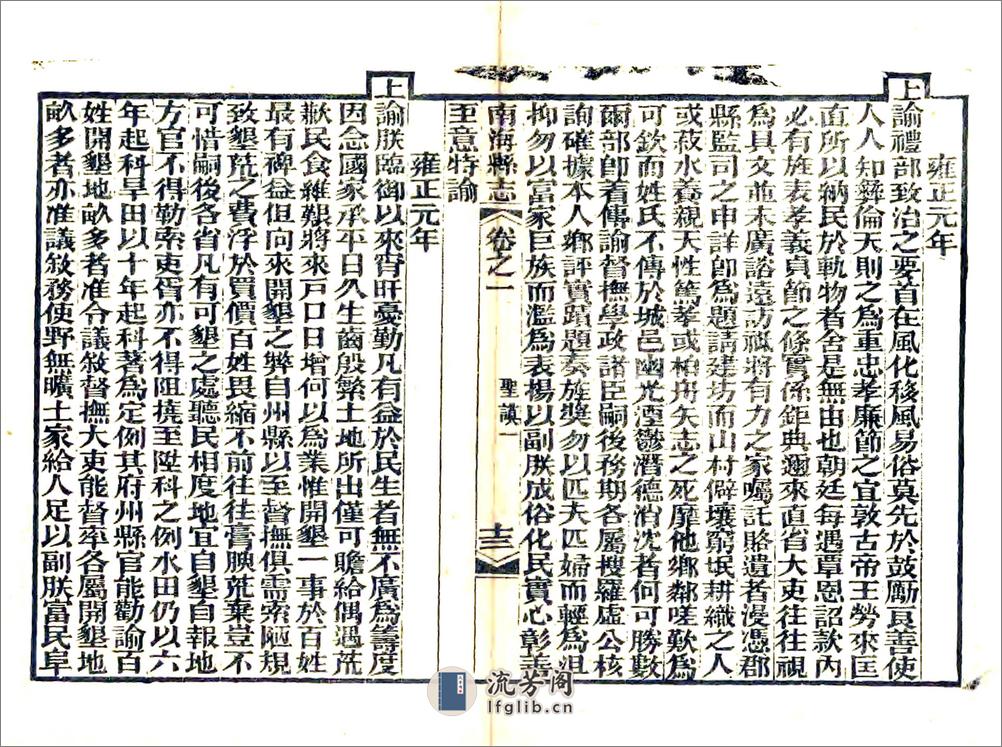 雍正元年
上諭禮部致治之要首在風化移風易俗莫先於鼓勵良善使
人人知彝倫天則之為重忠孝廉節之宜敦古帝王勞來匡
直所以納民於軌物者舍是無由也朝廷每遇覃恩詔款內
必有旌表孝義貞節之條實係鉅典邇來直省大吏往往視
為具文並未廣諮遠訪祗將有力之家囑託賂遺者漫憑郡
縣監司之申詳即為題請建坊而山村僻壤窮氓耕織之人
或菽水養親天性篤孝或柏舟矢志之死靡他鄉鄰嗟歎為
可欽而姓氏不傳於城邑幽光湮鬱潛德消沈者何可勝數
爾部即着傳諭督撫學政諸臣嗣後務期各屬搜羅虛公核
詢確據本人鄉評實蹟題奏旌獎勿以匹夫匹婦而輕為沮
抑勿以富家巨族而濫為表揚以副朕成俗化民實心彰善
南海縣志
卷之一
聖謨一
十三
至意特諭
雍正元年
上諭朕臨御以來宵旰憂勤凡有益於民生者無不廣為籌度
因念國家承平日久生齒殷繁土地所出僅可贍給偶遇荒
歉民食維艱將來戶口日增何以為業惟開墾一事於百姓
最有裨益但向來開墾之弊自州縣以至督撫俱需索陋規
致墾荒之費浮於買價百姓畏縮不前往往膏腴荒棄豈不
可惜嗣後各省凡有可墾之處聽民相度地宜自墾自報地
方官不得勒索吏胥亦不得阻撓至陞科之例水田仍以六
年起科旱田以十年起科著為定例其府州縣官能勸諭百
姓開墾地畝多者准令議敘督撫大吏能督率各屬開墾地
畝多者亦准議敘務使野無曠土家給人足以副朕富民阜
流芳阁
lfglib.cn